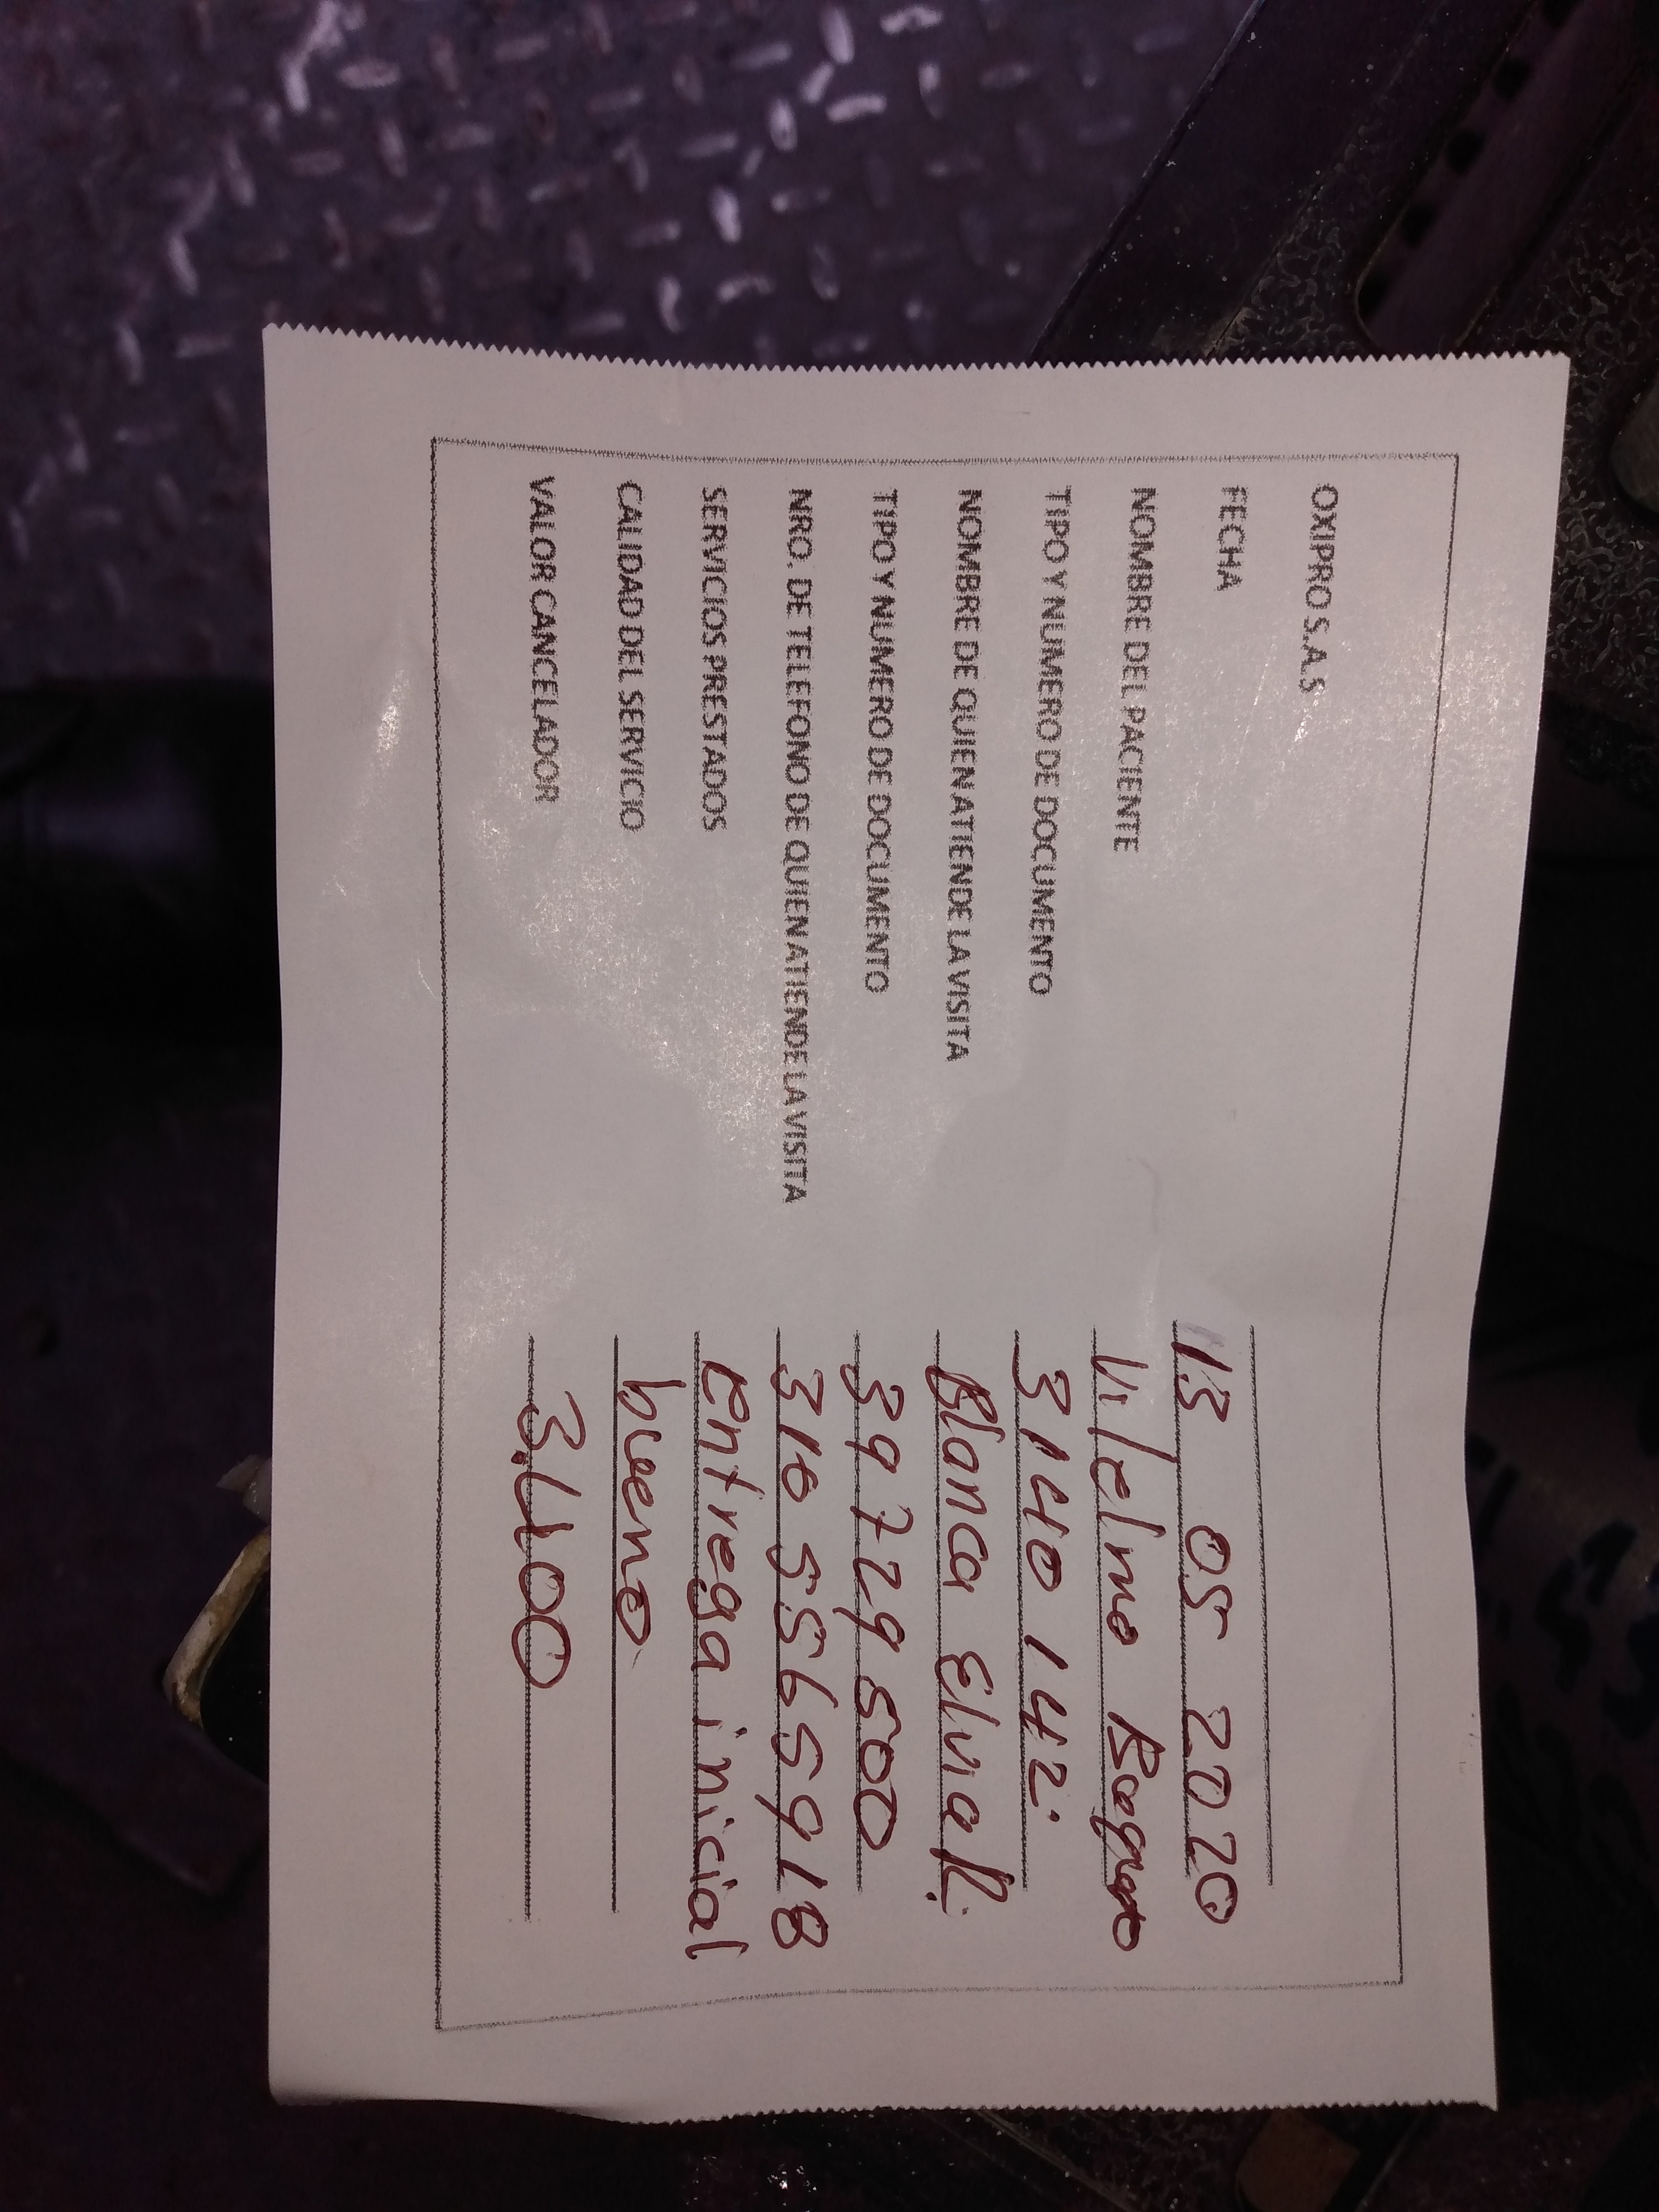 OXIPRO S.A.S
FECHA 13 05 2020
NOMBRE DEL PACIENTE
TIPO Y NUMERO DE DOCUMENTO 3140142.
NOMBRE DE QUIEN ATIENDE LA VISITA Blanca Elvia R.
TIPO Y NUMERO DE DOCUMENTO 39729500
NRO. DE TELEFONO DE QUIEN ATIENDE LA VISITA 310 5565918
SERVICIOS PRESTADOS Entrega inicial
CALIDAD DEL SERVICIO bueno
VALOR CANCELADOR 3.400